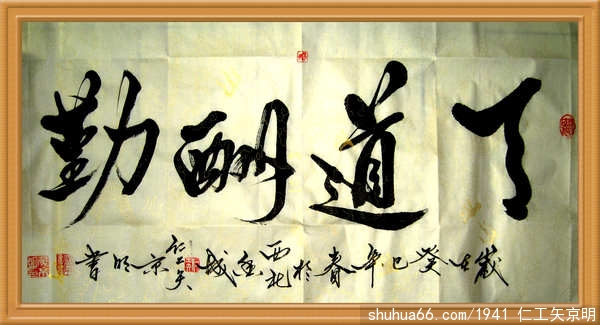 天道酬勤
歲在癸巳年春於西北金城仁工矢京明書
shuhua66.com/1941 仁工矢京明